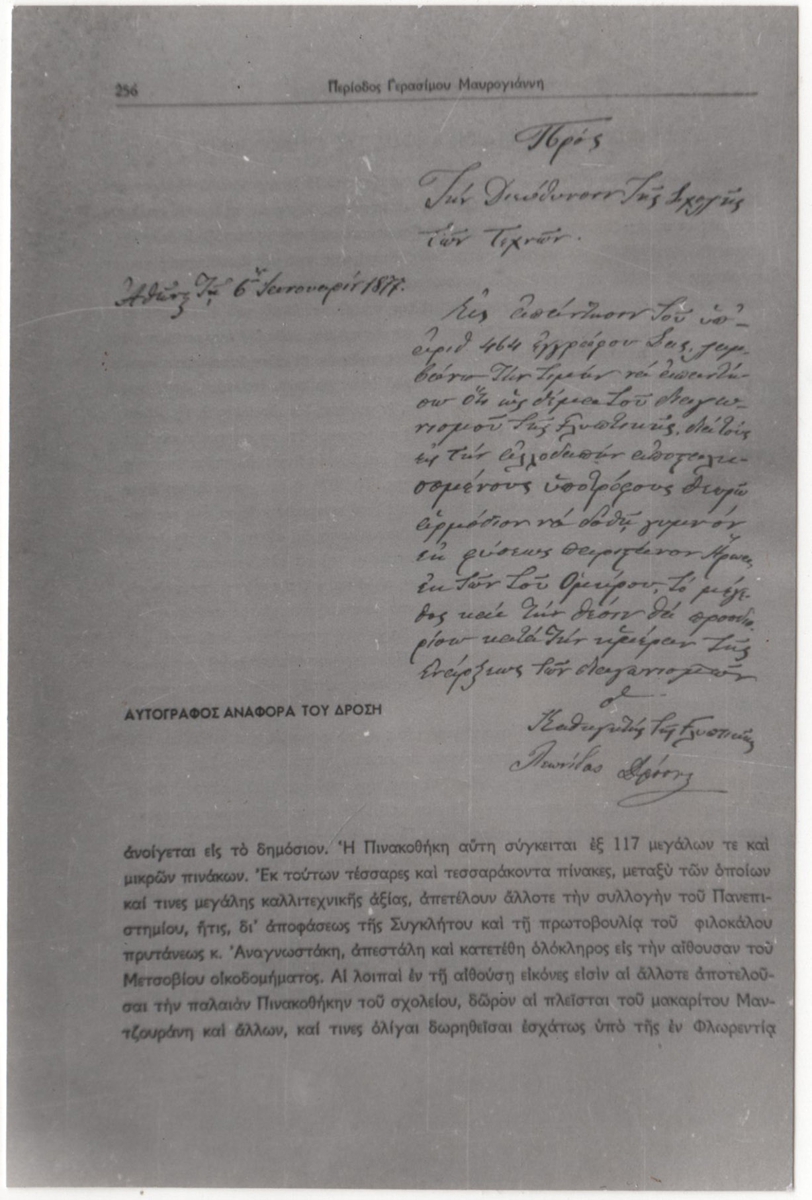 256
Περίοδος Γερασίμου Μαυρογιάννη
Πρός
Τὴν Διεύθυνσιν τῆς Σχολῆς
τῶν Τεχνῶν.
Ἀθῆναι τῇ 6ῃ Ἰανουαρίου 1877.
Εἰς ἀπάντησιν τοῦ ὑπ'
ἀριθ 464 ἐγγράφου Σας, λαμ-
βάνω τὴν τιμὴν νὰ ἀπαντή-
σω ὅτι ὡς θέμα τοῦ διαγω-
νισμοῦ τῆς Γλυπτικῆς, διὰ τοὺς
εἰς τὴν ἀλλοδαπὴν ἀποσταλη-
σομένους ὑποτρόφους θεωρῶ
ἁρμόδιον νὰ δοθῇ γυμνὸν
ἐκ φύσεως παριστάνον Ἥρωα
ἐκ τῶν τοῦ Ὁμήρου, τὸ μέγε-
θος καὶ τὴν θέσιν θὰ προσδιο-
ρίσω κατὰ τὴν ἡμέραν τῆς
ἐνάρξεως τῶν διαγωνισμῶν
ὁ
Καθηγητὴς τῆς Γλυπτικῆς
Λεωνίδας Δρόσης
ΑΥΤΟΓΡΑΦΟΣ ΑΝΑΦΟΡΑ ΤΟΥ ΔΡΟΣΗ
ἀνοίγεται εἰς τὸ δημόσιον. Ἡ Πινακοθήκη αὕτη σύγκειται ἐξ 117 μεγάλων τε καὶ
μικρῶν πινάκων. Ἐκ τούτων τέσσαρες καὶ τεσσαράκοντα πίνακες, μεταξὺ τῶν ὁποίων
καί τινες μεγάλης καλλιτεχνικῆς ἀξίας, ἀπετέλουν ἄλλοτε τὴν συλλογὴν τοῦ Πανεπι-
στημίου, ἥτις, δι' ἀποφάσεως τῆς Συγκλήτου καὶ τῇ πρωτοβουλίᾳ τοῦ φιλοκάλου
πρυτάνεως κ. Ἀναγνωστάκη, ἀπεστάλη καὶ κατετέθη ὁλόκληρος εἰς τὴν αἴθουσαν τοῦ
Μετσοβίου οἰκοδομήματος. Αἱ λοιπαὶ ἐν τῇ αἰθούσῃ εἰκόνες εἰσὶν αἱ ἄλλοτε ἀποτελοῦ-
σαι τὴν παλαιὰν Πινακοθήκην τοῦ σχολείου, δῶρον αἱ πλεῖσται τοῦ μακαρίτου Μαν-
τζουράνη καὶ ἄλλων, καί τινες ὀλίγαι δωρηθεῖσαι ἐσχάτως ὑπὸ τῆς ἐν Φλωρεντίᾳ